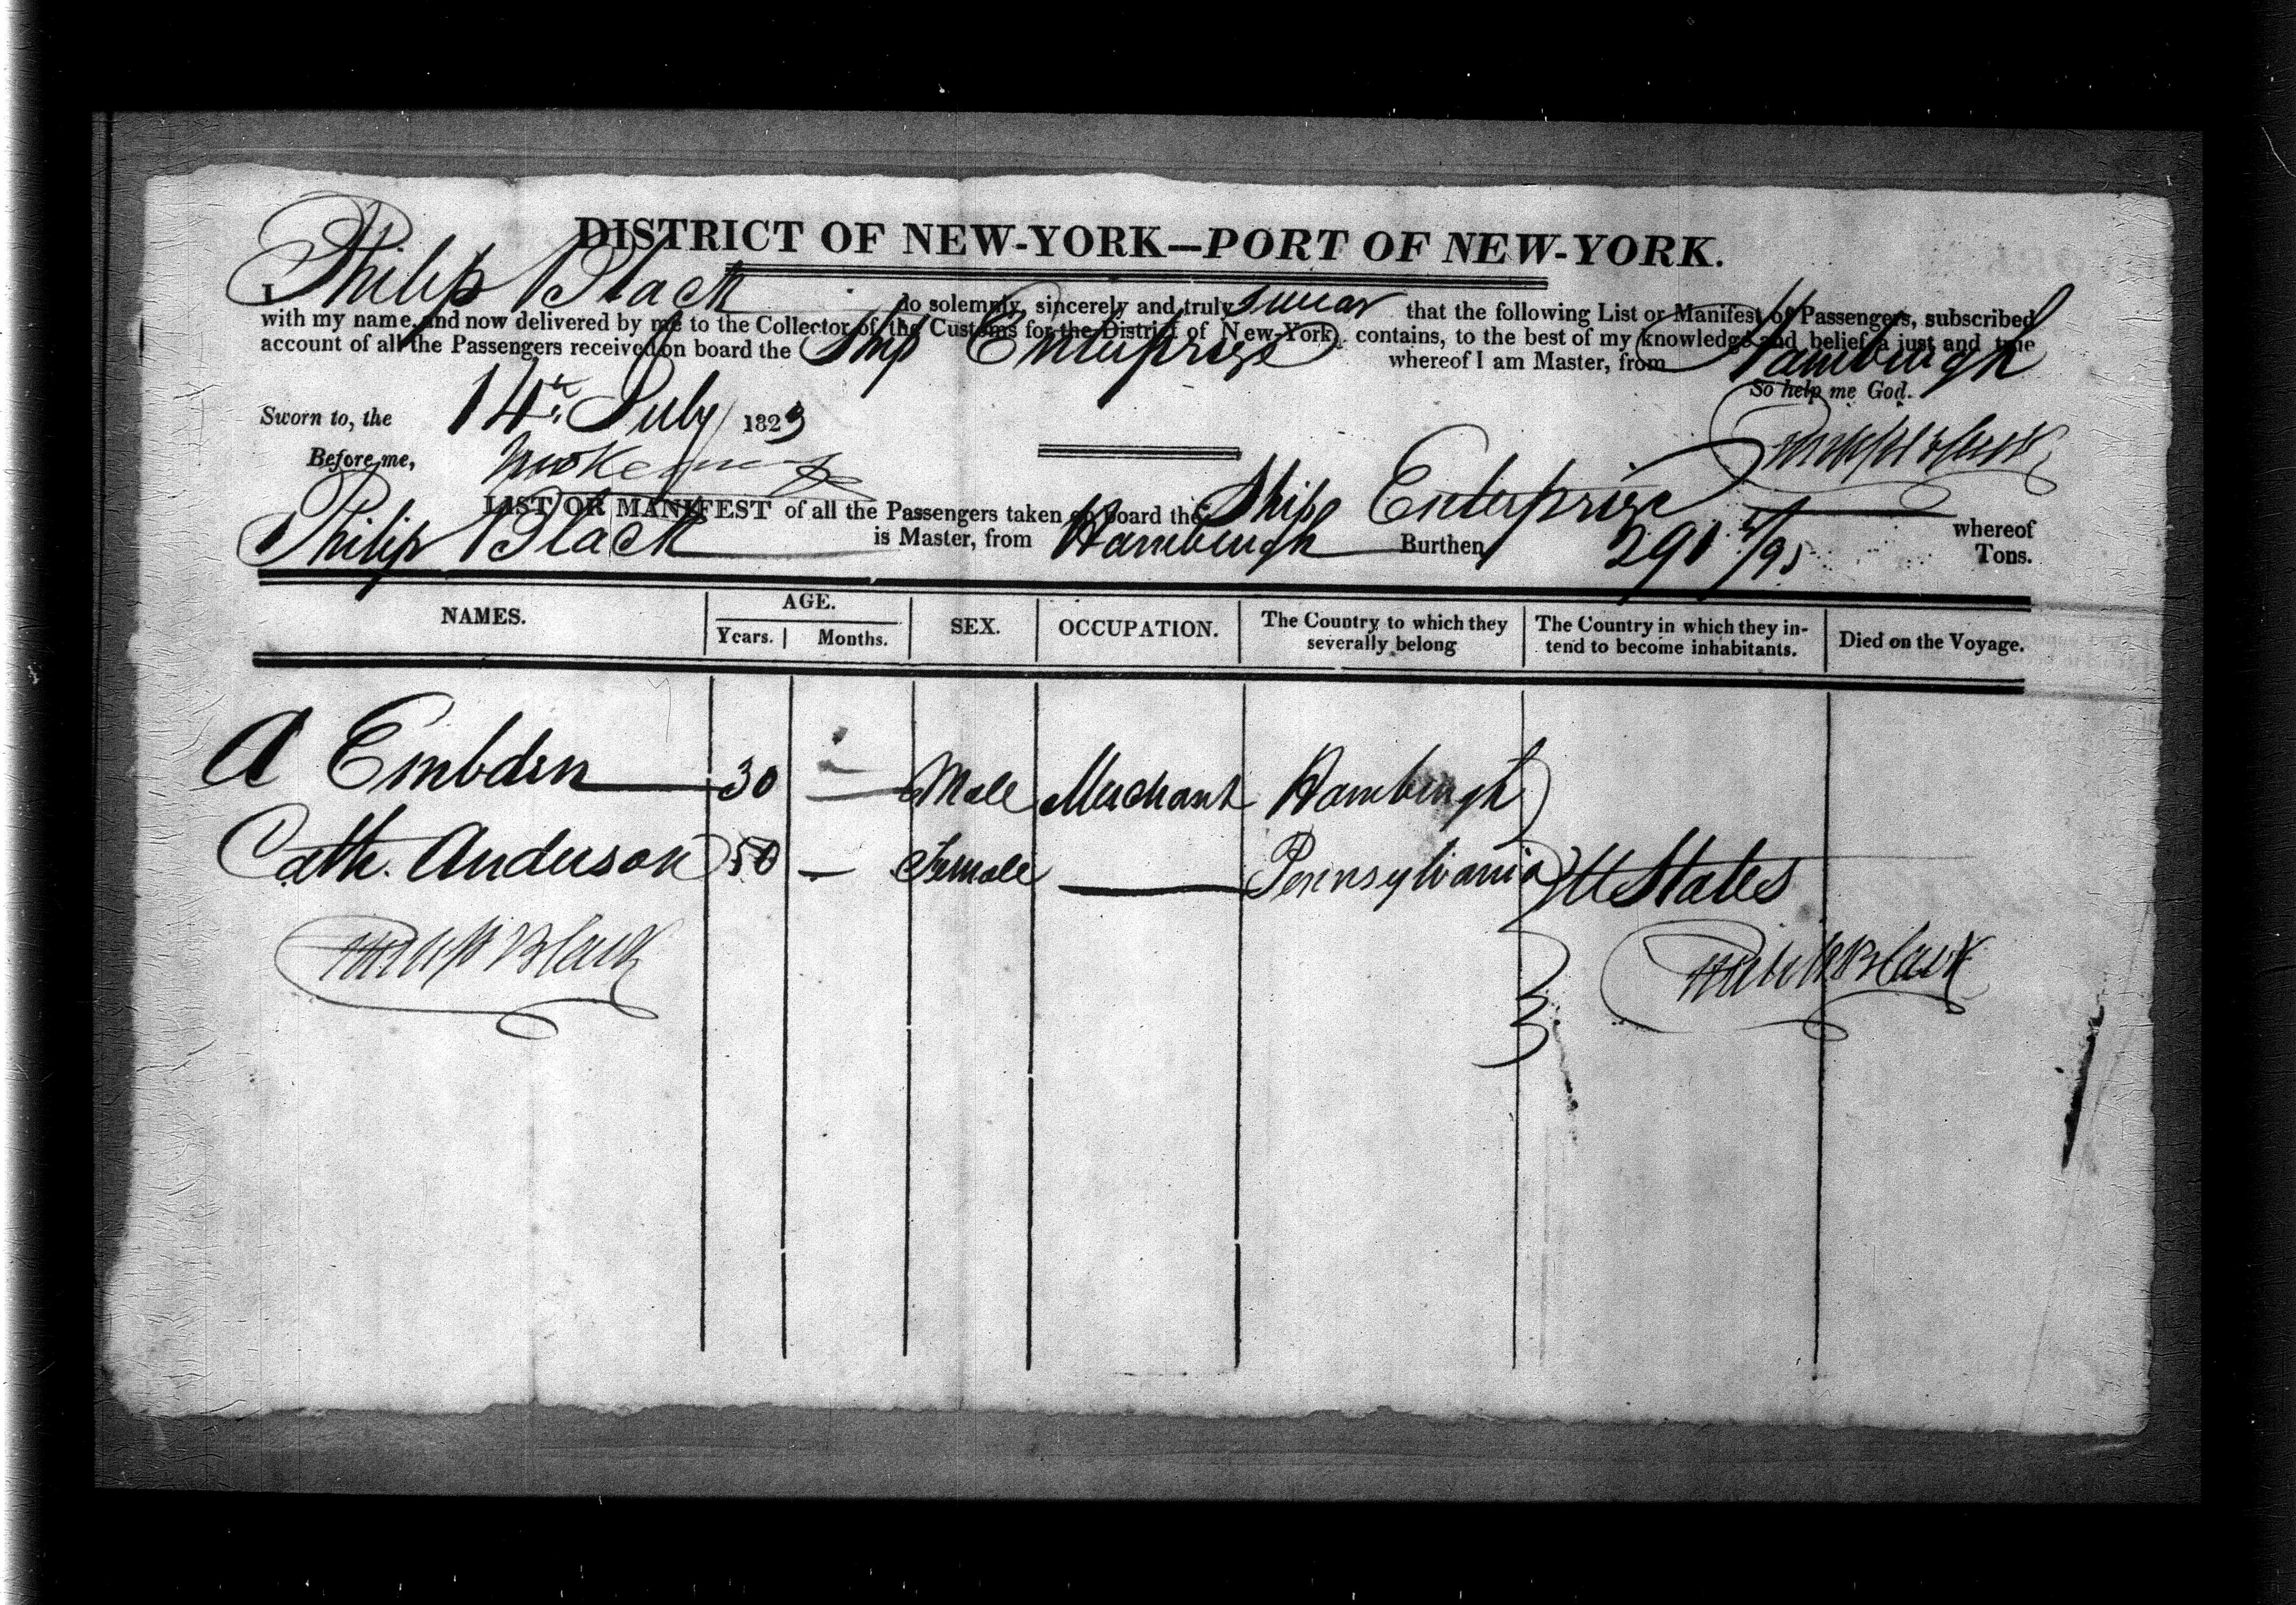 DISTRICT OF NEW-YORK—PORT OF NEW-YORK.
I Philip Black do solemnly, sincerely and truly swear that the following List or Manifest of Passengers, subscribed
with my name, and now delivered by me to the Collector of the Customs for the District of New-York, contains, to the best of my knowledge and belief, a just and true
account of all the Passengers received on board the Ship Enterprize whereof I am Master, from Hamburgh
So help me God.
Sworn to, the 14th July 1823
Philip Black
Before me,
LIST OR MANIFEST of all the Passengers taken on board the Ship Enterprize whereof
Philip Black is Master, from Hamburgh Burthen 291 /95 Tons.
NAMES. AGE. SEX. OCCUPATION. The Country to which they severally belong The Country in which they intend to become inhabitants. Died on the Voyage.
Years. Months.
A Embden 30 — Male Merchant Hamburgh
Cath. Anderson 50 — Female — Pennsylvania U States
Philip Black Philip Black